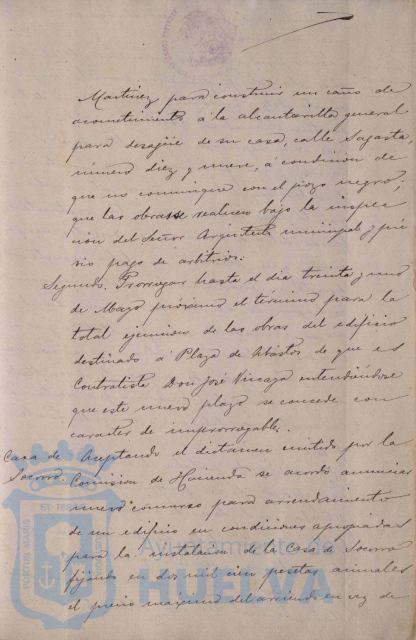 Martinez para construir un caño de
acometimiento á la alcantarilla general
para desagüe de su casa, calle Sagasta,
número diez y nueve, á condicion de
que no comunique con el pozo negro;
que las obras se realicen bajo la inspec
cion del Señor Arquitecto municipal y pré
vio pago de arbitrios.
Segundo. Prorrogar hasta el dia treinta y uno
de Mayo próximo el término para la
total ejecucion de las obras del edificio
destinado á Plaza de Abastos de que es
Contratista Don José Vizcaya entendiéndose
que este nuevo plazo se concede con
caracter de improrrogable.
Casa de Socorro.
Aceptando el dictamen emitido por la
Comision de Hacienda se acordó anunciar
nuevo concurso para arrendamiento
de un edificio en condiciones apropiadas
para la instalacion de la Casa de Socorro
fijando en dos mil cien pesetas anuales
el precio máximo del arriendo en vez de
Ayuntamiento de
HUELVA
PORTUS MARIS
ET TER